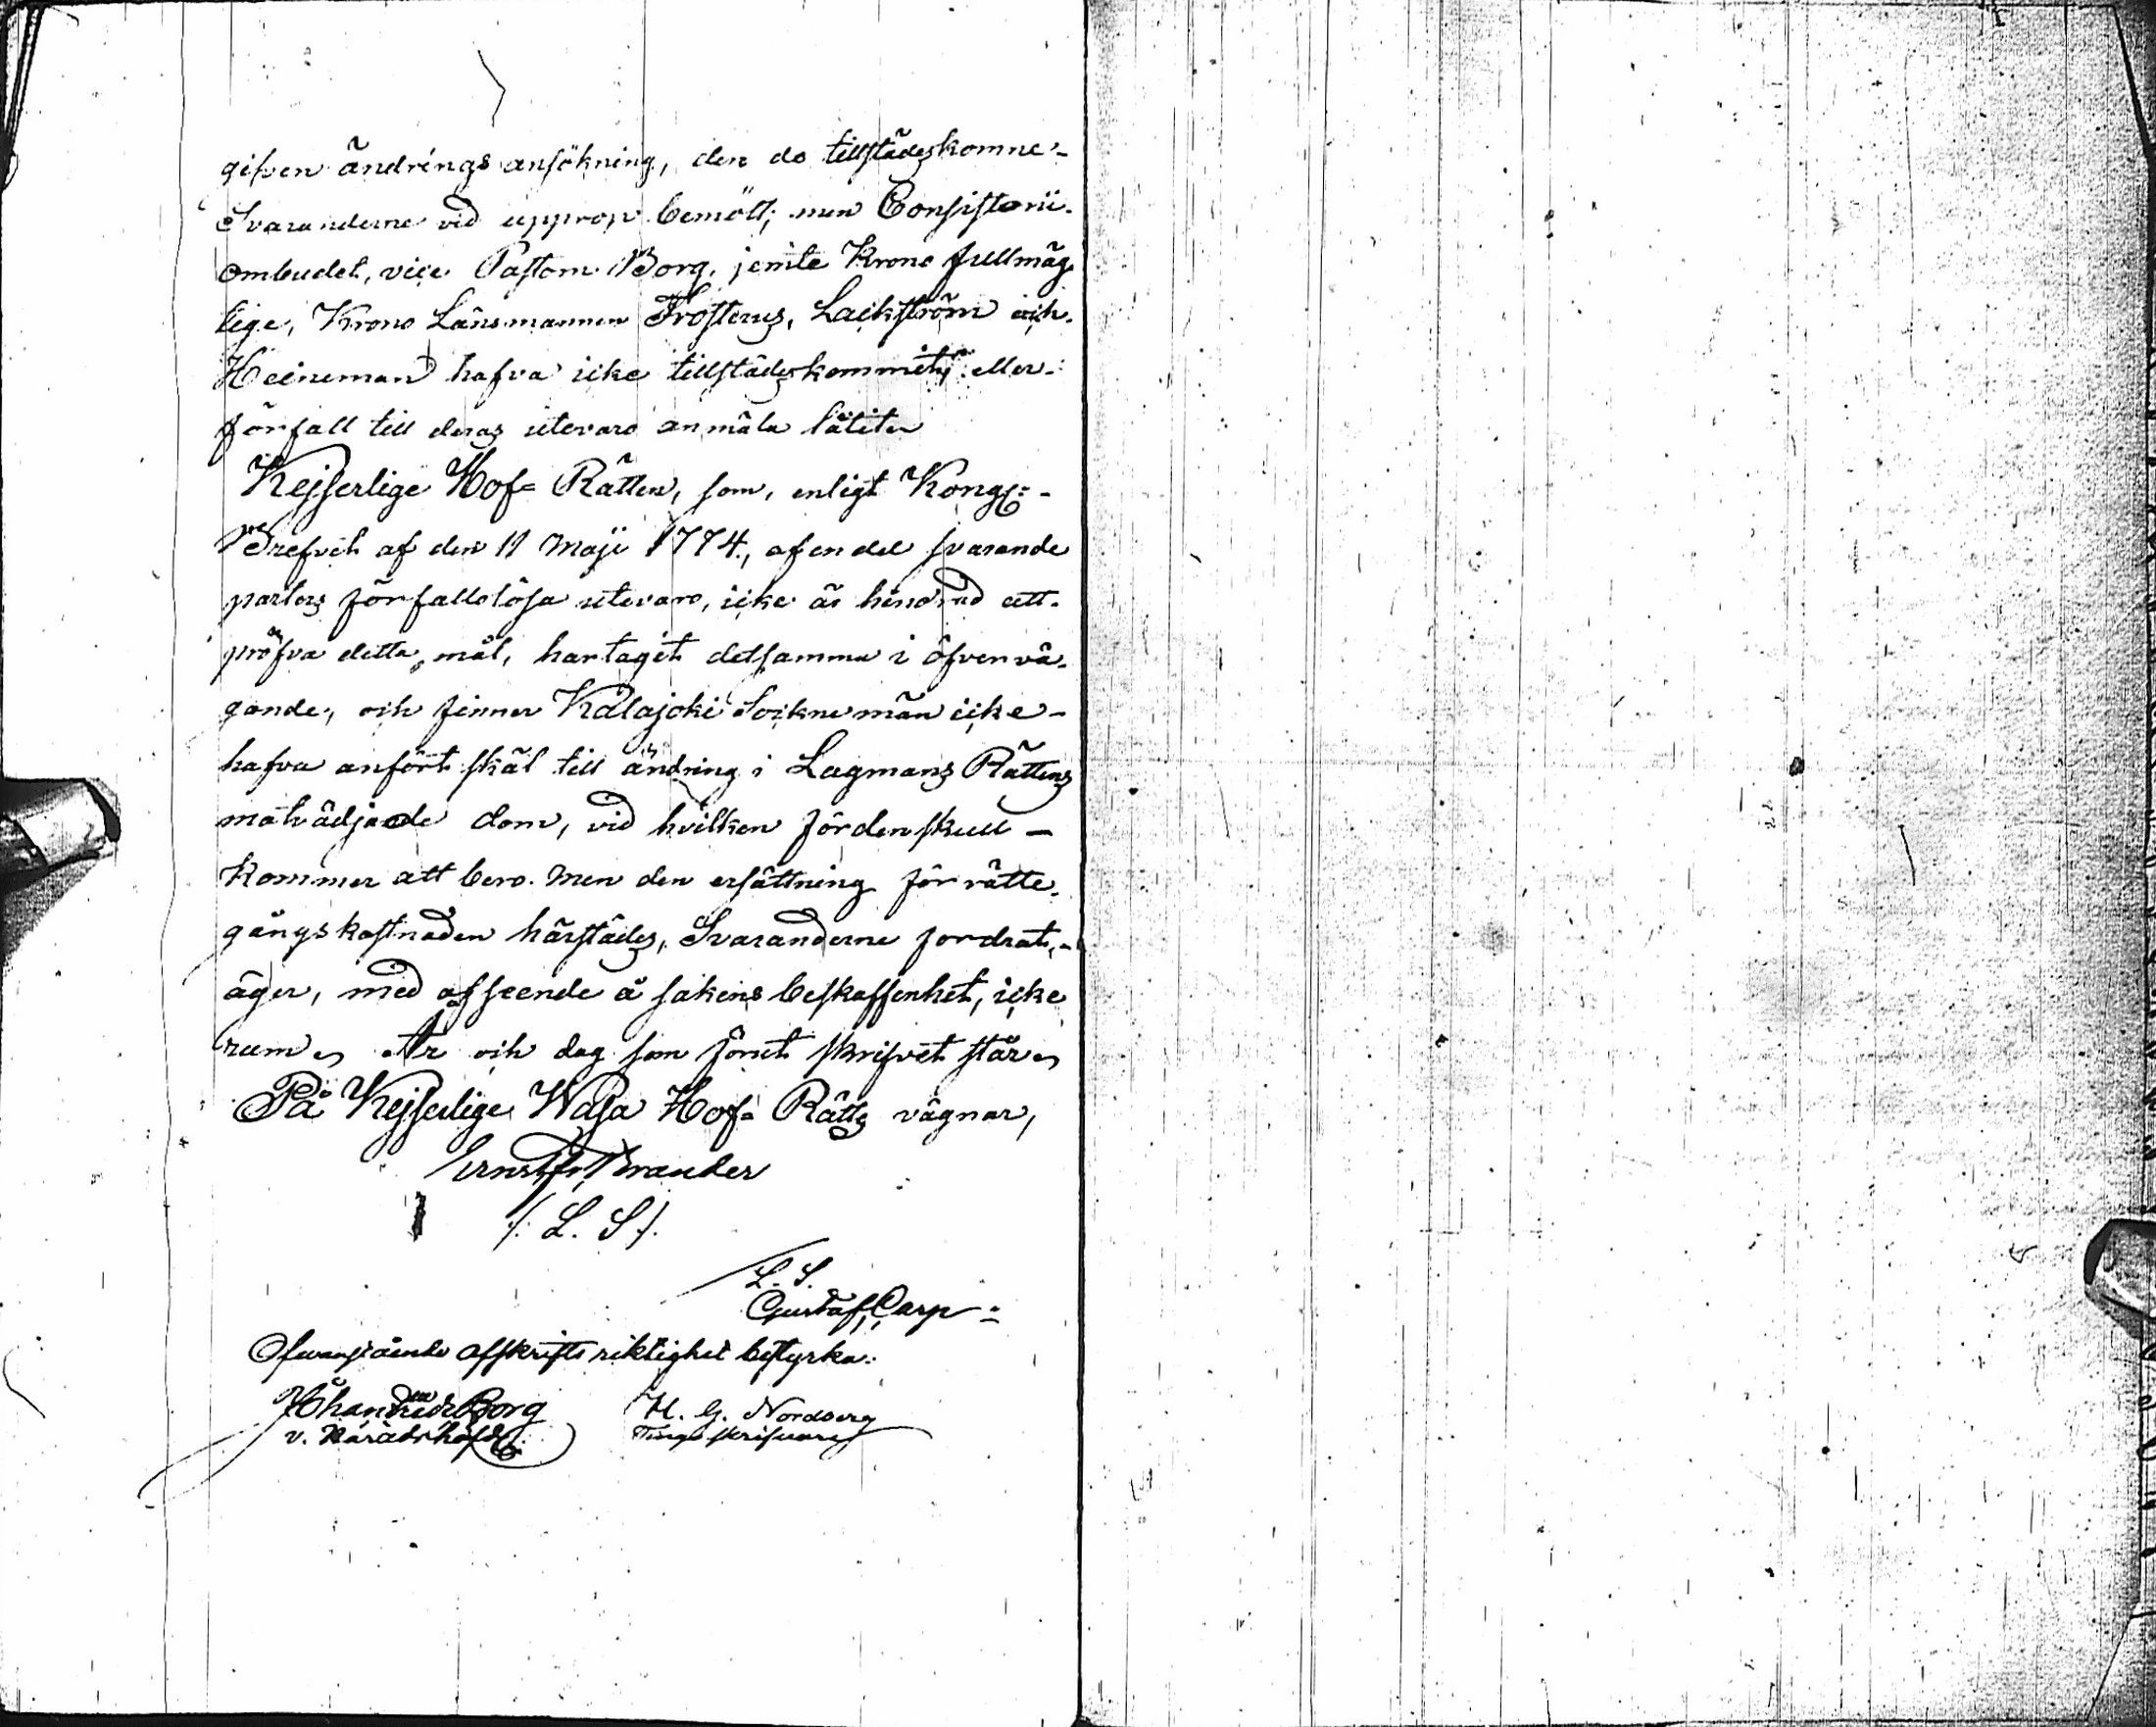 gifven ändrings ansökning, den de tillstädeskomne
Svaranderne vid upprop bemött; men Consistorii
ombudet, vice Pastorn Borg, jemte Krono fullmäg-
tige, Krono Länsmannen Frosterus, Lackström och
Heineman hafva icke tillstädeskommit, eller
förfall till deras utevaro anmäla låtit
Kejserlige Hof-Rätten, som, enligt Kongl:
Brefvet af den 11 Maji 1774, af en del svarande
parters förfallolösa utevaro, icke är hindrad att
pröfva detta mål, har tagit detsamma i öfvervä-
gande, och finner Kalajoki Sockne män icke
hafva anfört skäl till ändring i Lagmans Rättens
dom, vid hvilken fördenskull
kommer att bero. Men den ersättning för rätte-
gångskostnaden härstädes, Svaranderne fordrat,
äger, med afseende å sakens beskaffenhet, icke
rum, År och dag som förut skrifvet står,
På Kejserlige Wasa Hof-Rätts vägnar,
Ernst Brander
/: L. S :/
L. S.
Gustaf Carp
Ofvanstående afskrifts riktighet bestyrka:
Johan Borg H. G. Nordberg
v. Häradshöfd: Tings skrifvare